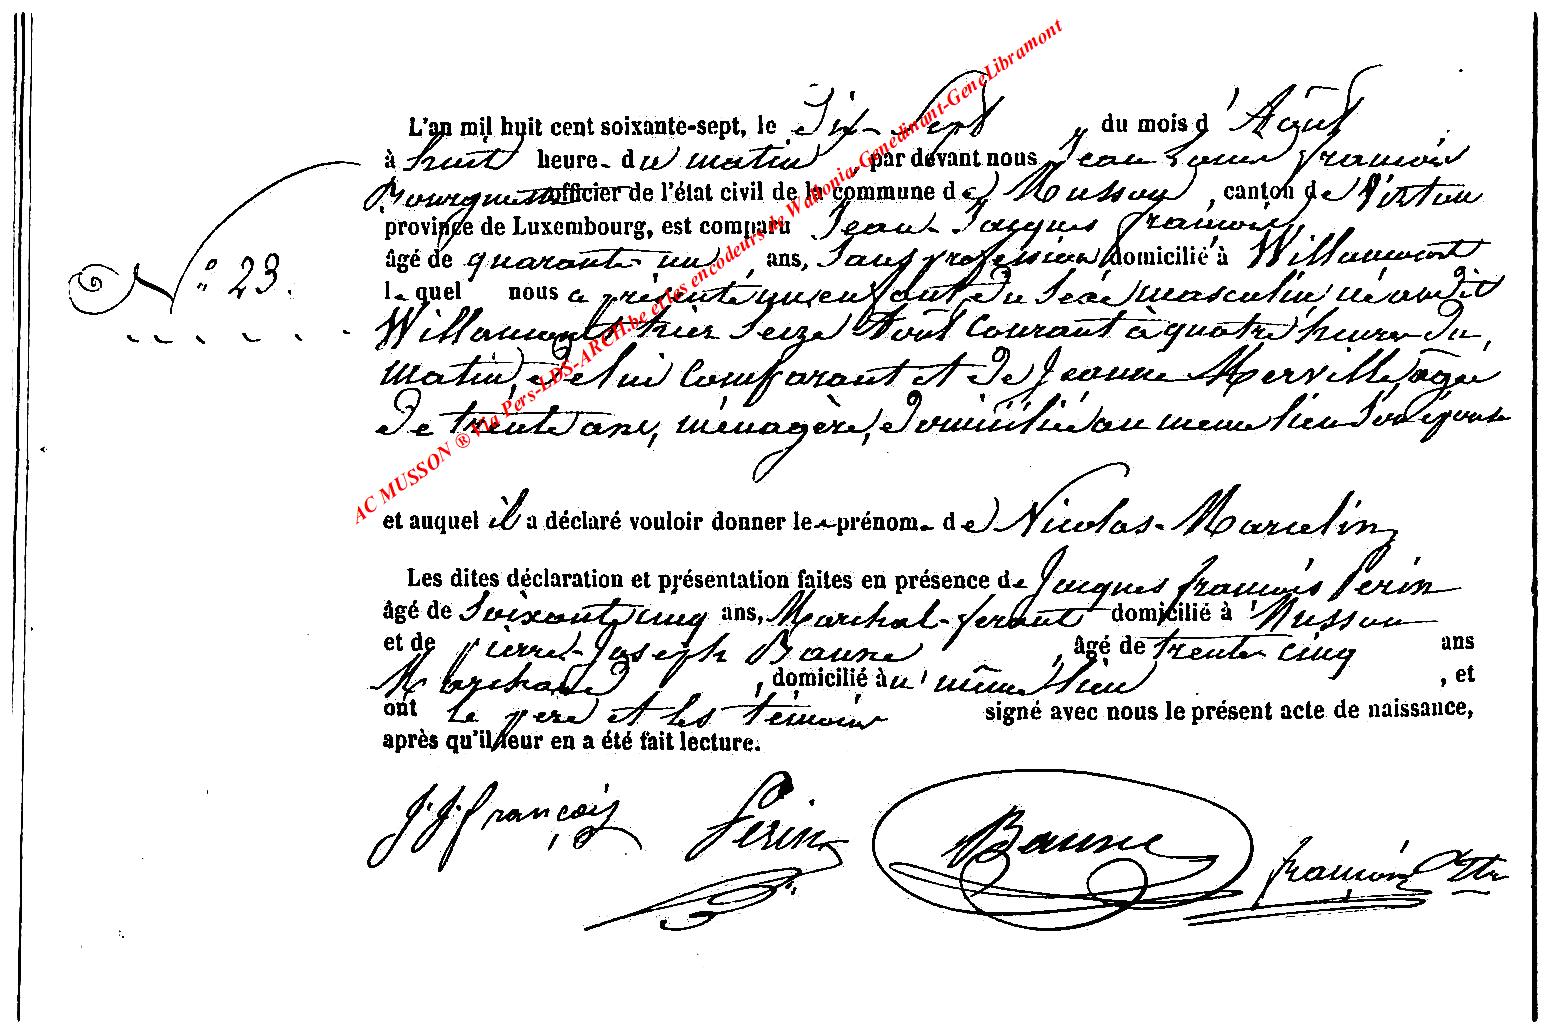 L'an mil huit cent soixante-sept, le Dix-Sept du mois d'Août
à huit heure- du matin, par devant nous Jean Louis François
Bourgmestre officier de l'état civil de la commune de Musson, canton de Virton
province de Luxembourg, est comparu Jean-Jacques François,
âgé de quarante un ans, Sans profession domicilié à Willancourt
N° 23.
lequel nous a présenté un enfant du Sexe masculin né audit
Willancourt hier Seize Août courant à quatre heures du
matin, de lui Comparant et de Jeanne Merville, âgée
de trente ans, ménagère, domiciliée au même lieu Son épouse
et auquel il a déclaré vouloir donner le prénom- de Nicolas-Marcelin
Les dites déclaration et présentation faites en présence de Jacques François Perin
âgé de Soixante cinq ans, Marchal-ferant domicilié à Musson
et de Pierre-Joseph Baune, âgé de trente cinq ans
Marchand, domicilié au même lieu, et
ont le père et les témoins signé avec nous le présent acte de naissance,
après qu'il leur en a été fait lecture.
J. J. François Perin Baune François
AC MUSSON ® Via Pers-LDS-ARCH.be et les encodeurs de Wallonia-Genedinant-GeneLibramont